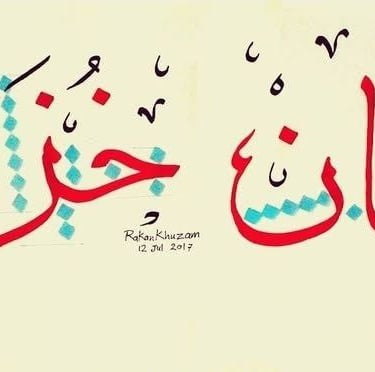 ان خز
Rakan Khuzam
12 Jul 2017